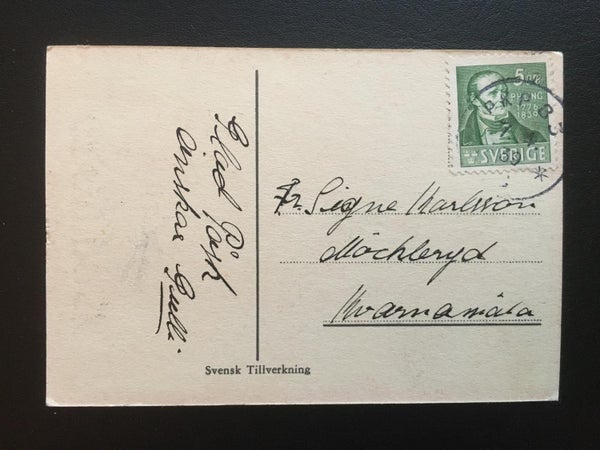 Glad Påsk
önskar Gulli
5 öre
PH LING
1776
1839
SVERIGE
Fr. Signe Karlsson
Möckleryd
Kvarnamåla
Svensk Tillverkning